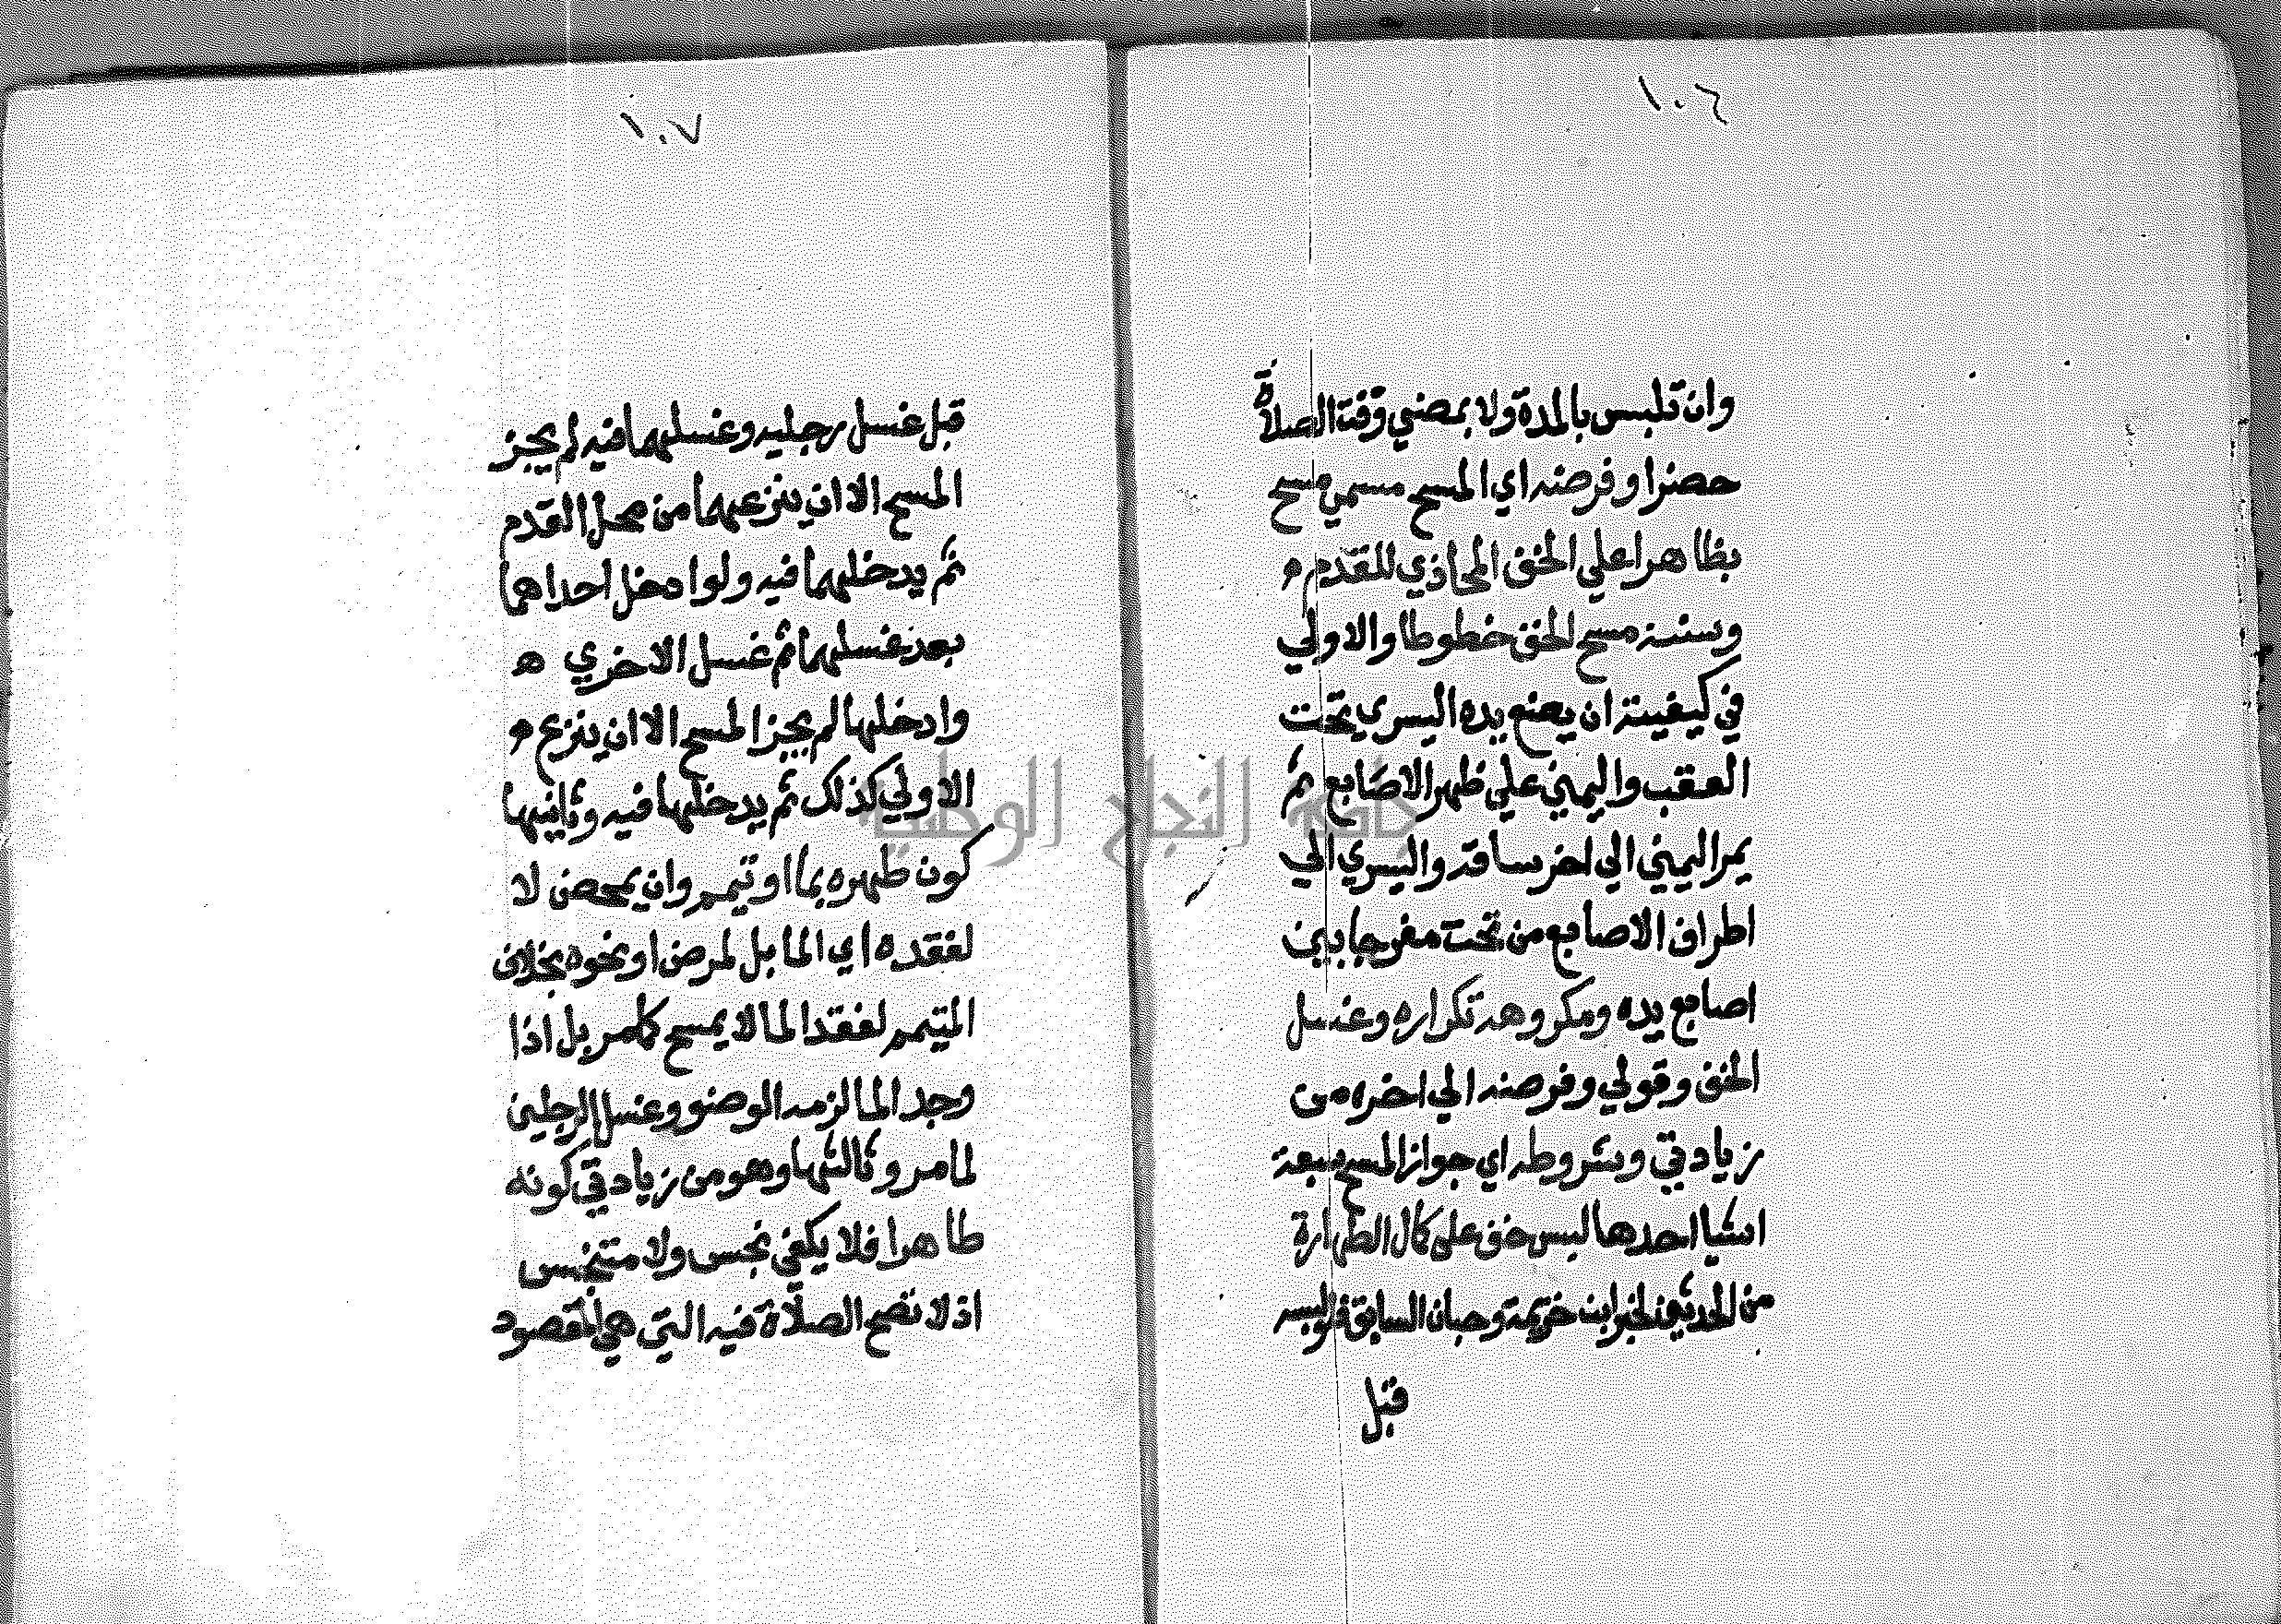 ١٠٦
وان تلبس بالمدة ولا بمضي وقت الصلاة
حضرا وفرضه اي المسح مسمي مسح
بظاهر اعلي الخف المحاذي للقدم م
وسننه مسح الخف خطوطا والاولي
في كيفيته ان يضع يده اليسري تحت
العقب واليمني علي ظهر الاصابع ثم
يمر اليمني الي اخر ساقه واليسري الي
اطراف الاصابع من تحت مفرجا بين
اصابع يده ومكروهه تكراره وغسل
الخف وقولي وفرضه الي اخره من
زيادتي وشروطه اي جواز المسح سبعة
اشيا احدها لبس خف على كمال الطهارة
من الحدثين لخبر ابنا خزيمة وحبان السابق فلو لبسه
قبل
١٠٧
قبل غسل رجليه وغسلهما فيه لم يجز
المسح الا ان ينزعهما من محل القدم
ثم يدخلهما فيه ولو ادخل احداهما
بعد غسلهما ثم غسل الاخري ه
وادخلها لم يجز المسح الا ان ينزع م
الاولي كذلك ثم يدخلها فيه وثانيها
كون طهره بما او تيمم وان تمحض لا
لفقده اي الما بل لمرض او نحوه بخلاف
المتيمم لفقد الما لا يمسح كما مر بل اذا
وجد الما لزمه الوضو وغسل الرجلين
لما مر وثالثها وهو من زيادتي كونه
طاهرا فلا يكفي نجس ولا متنجس
اذ لا تصح الصلاة فيه التي هي المقصود
جامعة النجاح الوطنية